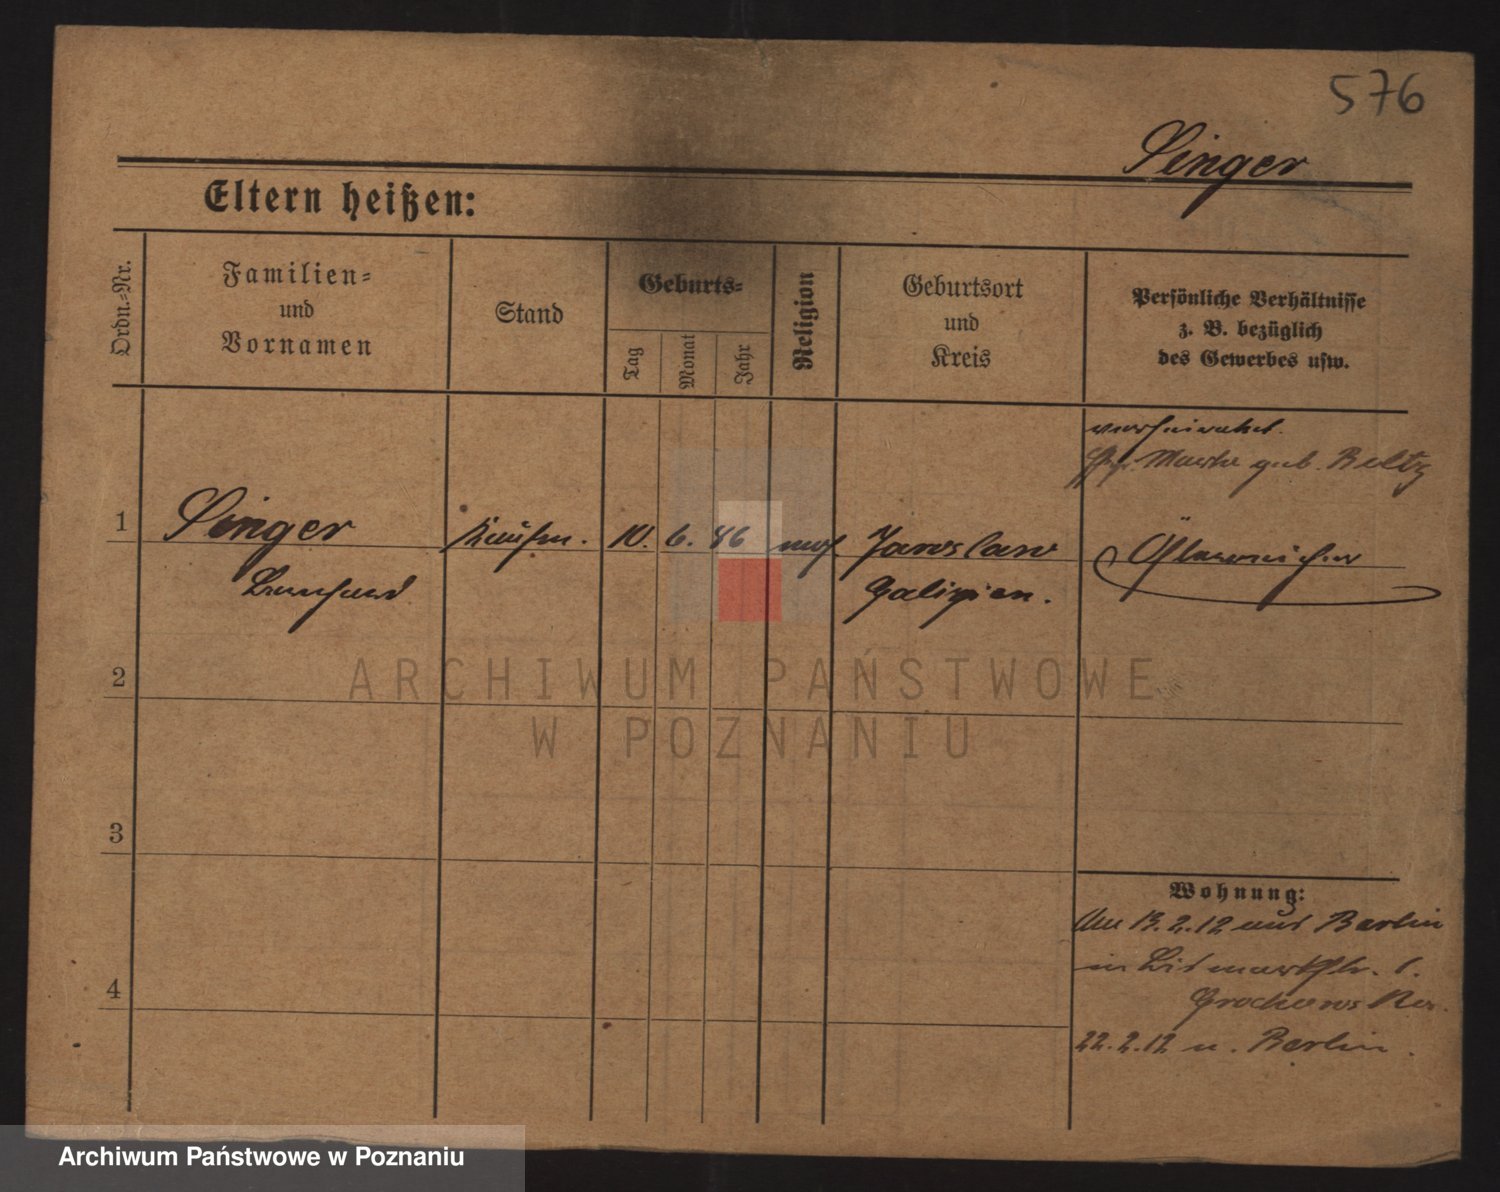 576
Singer
Eltern heißen:
Ordn.-Nr.
Familien-
und
Vornamen
Stand
Geburts-
Tag
Monat
Jahr
Religion
Geburtsort
und
Kreis
Persönliche Verhältnisse
z. B. bezüglich
des Gewerbes usw.
verheiratet.
Martha geb. Beltz
1
Singer
Kaufm.
10. 6. 86
mos
Jaroslaw
Österreicher
Bernhard
Galizien.
2
3
4
Wohnung:
Am 13.2.12 aus Berlin
in Bismarckstr. 1.
22.2.12 n. Berlin.
ARCHIWUM PAŃSTWOWE
W POZNANIU
Archiwum Państwowe w Poznaniu